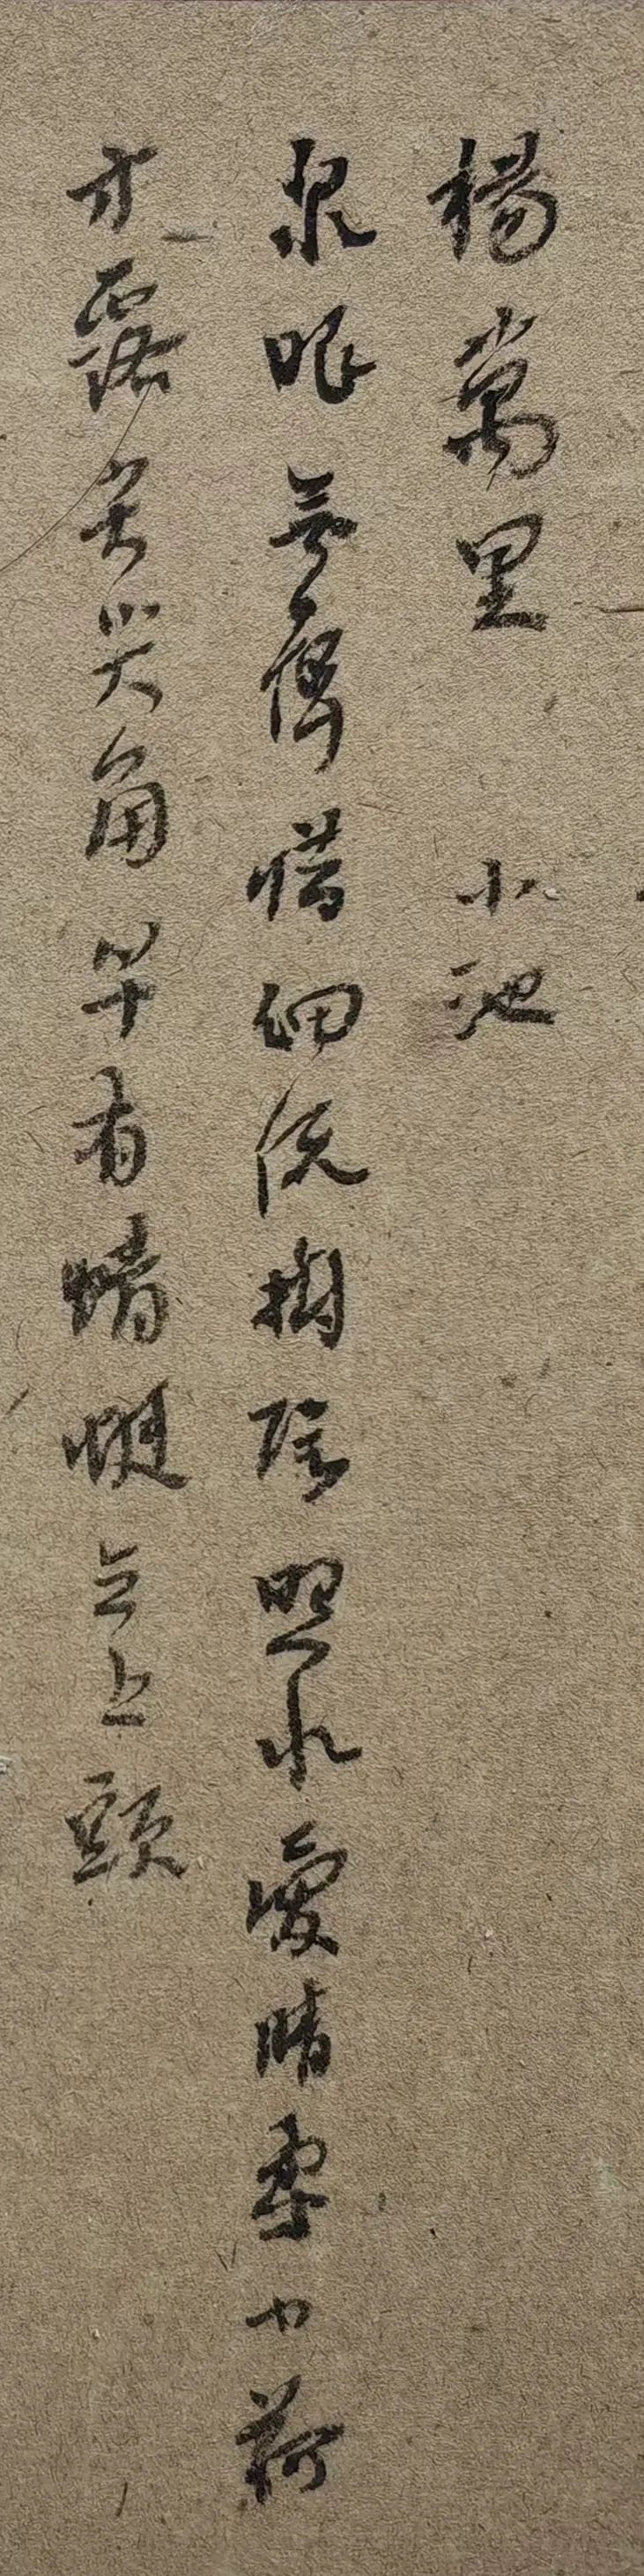 楊萬里 小池
泉眼無聲惜細流樹陰照水愛晴柔小荷
才露尖尖角早有蜻蜓立上頭